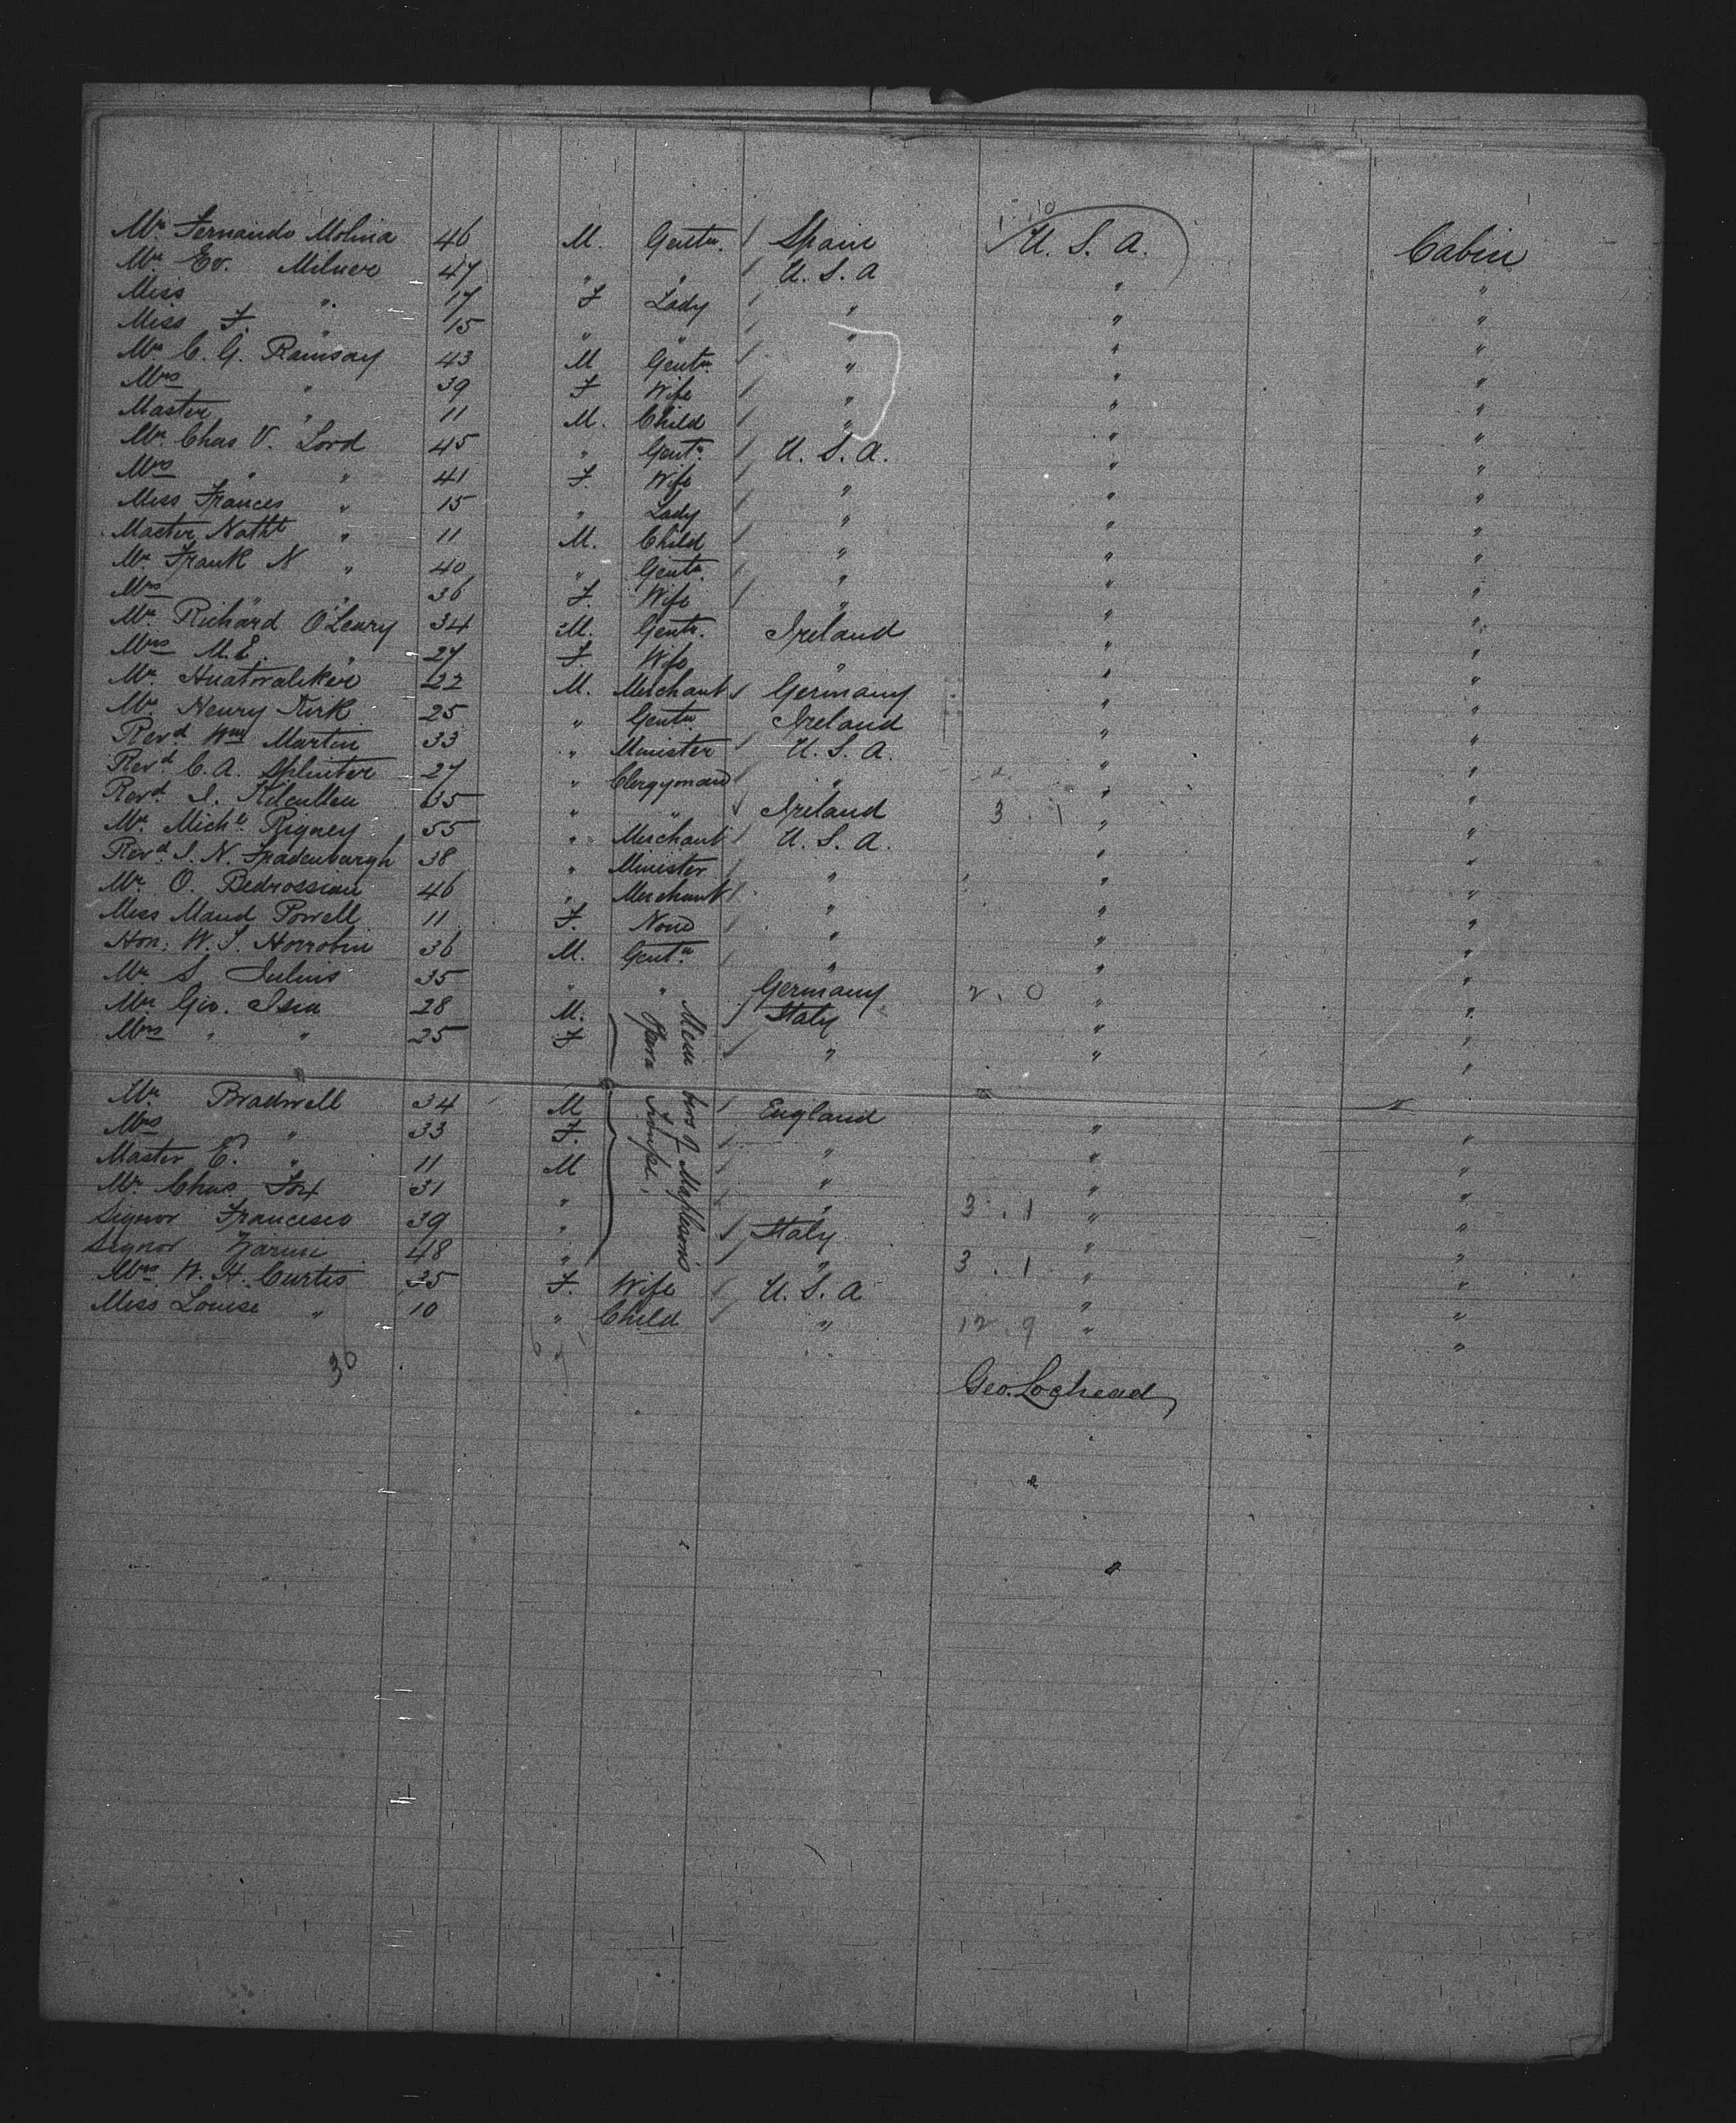 1 . 10
Mr Fernando Molina 46 M. Gentn. / Spain / U. S. A. Cabin
Mr Ev. Milner 47 " " / U. S. A " "
Miss " 17 F Lady / " " "
Miss F. " 15 " " / " " "
Mr C. G. Ramsay 43 M Gentn. / " " "
Mrs " 39 F Wife / " " "
Master " 11 M. Child / " " "
Mr. Chas V. Lord 45 " Gentn. / U. S. A. " "
Mrs " " 41 F. Wife / " " "
Miss Frances " 15 " Lady / " " "
Master Nathl " 11 M. Child / " " "
Mr. Frank N " 40 " Gentn. / " " "
Mrs " " 36 F. Wife / " " "
Mr. Richard O'Leary 34 M. Gentn. Ireland " "
Mrs M. E. " 27 F. Wife " " "
Mr. 22 M. Merchant / Germany " "
Mr Henry Kirk 25 " Gentn Ireland " "
Revd. Wm Martin 33 " Minister / U. S. A. " "
Revd C. A. Splinter 27 " Clergyman / " " "
Revd. I. Kilcullen 35 " " / Ireland 3 . 1 " "
Mr. Michl. Rigney 55 " Merchant / U. S. A. " "
Revd. I. N. Fradenburgh 38 " Minister / " " "
Mr. O. Bedrossian 46 " Merchant / " " "
Miss Maud Powell 11 F. None / " " "
Hon. W. S. Horrobin 36 M. Gentn / " " "
Mr S. Julius 35 " " / Germany 2 . 0 " "
Mr Gio. Isia 28 M. / Italy " "
Mrs " " 25 F / " " "
Mem bers of Mapleson's
Opera Troupe.
Mr. Bradwell 34 M / England " "
Mrs " 33 F. / " " "
Master E. " 11 M / " " "
Mr. Chas Fox 31 " / " 3 . 1 " "
Signor Francesco 39 " / Italy " "
Signor Zarini 48 " / " 3 . 1 " "
Mrs. W. H. Curtis 35 F. Wife / U. S. A " "
Miss Louise " 10 " Child / " 12 . 9 " "
30
Geo. Lochead